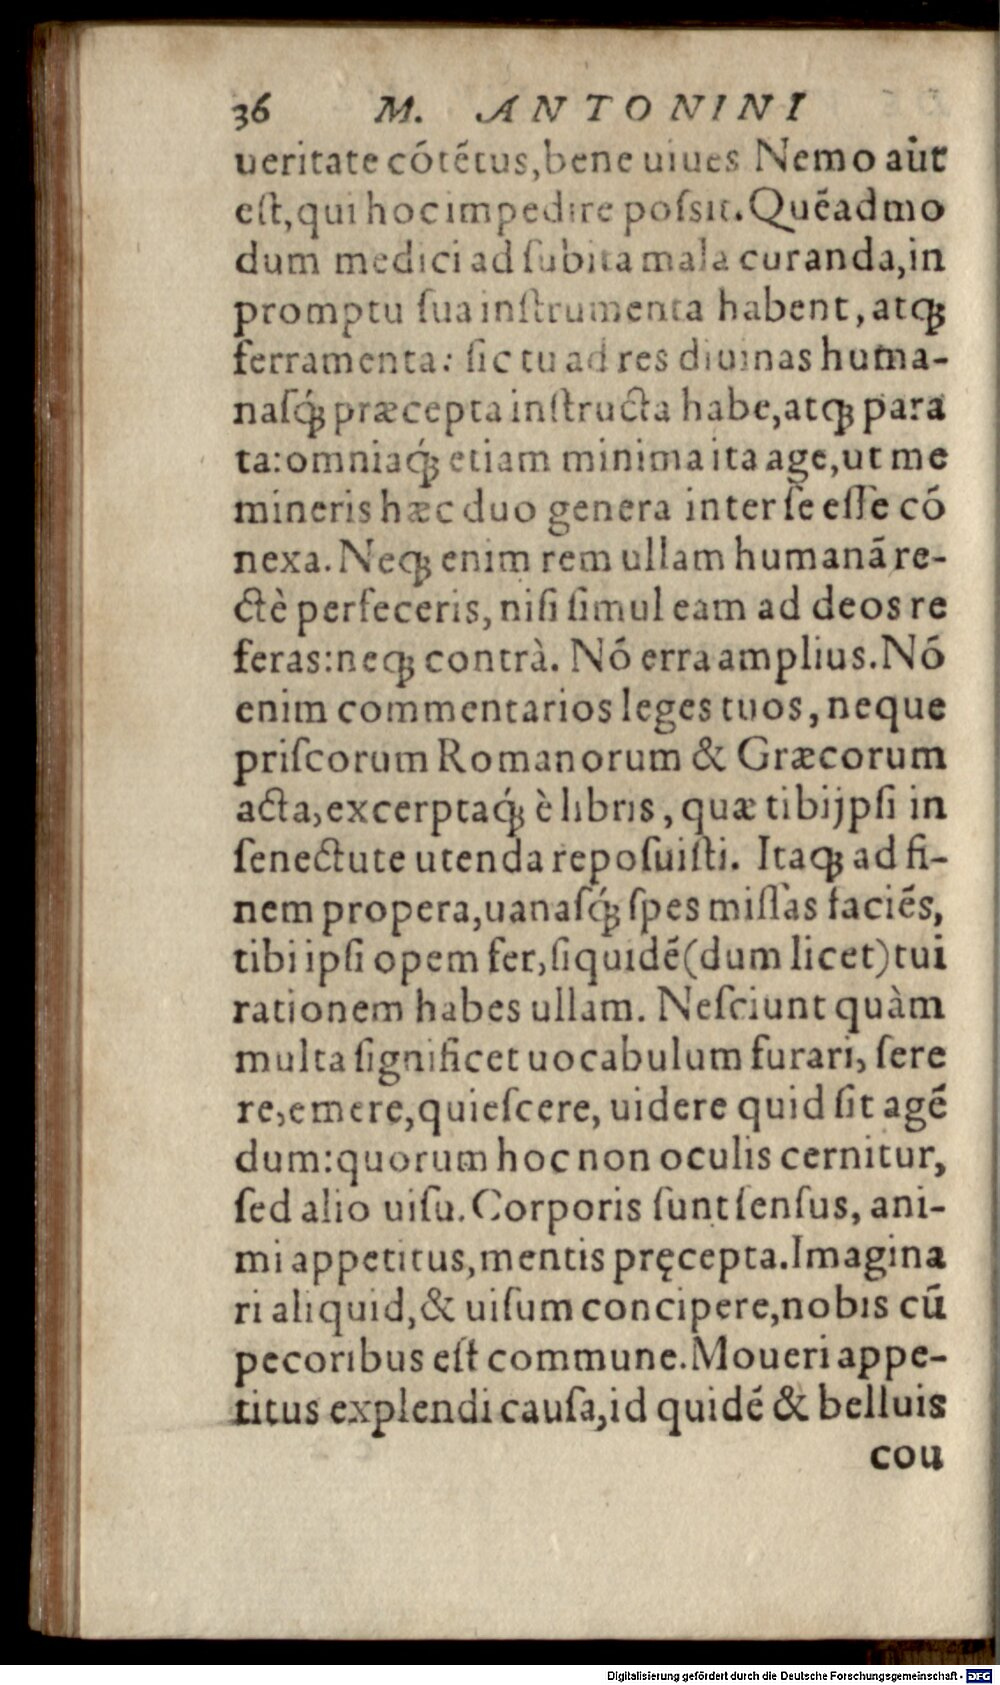 36 M. ANTONINI
ueritate cõtẽtus, bene uiues Nemo aũt
eſt, qui hoc impedire poſsit. Quẽadmo
dum medici ad ſubita mala curanda, in
promptu ſua inſtrumenta habent, atqꝫ
ferramenta: ſic tu ad res diuinas huma-
naſq́ꝫ præcepta inſtructa habe, atqꝫ para
ta: omniaq́ꝫ etiam minima ita age, ut me
mineris hæc duo genera inter ſe eſſe cõ
nexa. Neqꝫ enim rem ullam humanã re-
ctè perfeceris, niſi ſimul eam ad deos re
feras: neqꝫ contrà. Nõ erra amplius. Nõ
enim commentarios leges tuos, neque
priſcorum Romanorum & Græcorum
acta, excerptaq́ꝫ è libris, quæ tibijpſi in
ſenectute utenda repoſuiſti. Itaqꝫ ad fi-
nem propera, uanaſq́ꝫ ſpes miſſas faciẽs,
tibi ipſi opem fer, ſiquidẽ (dum licet) tui
rationem habes ullam. Neſciunt quàm
multa ſignificet uocabulum furari, ſere
re, emere, quieſcere, uidere quid ſit agẽ
dum: quorum hoc non oculis cernitur,
ſed alio uiſu. Corporis ſunt ſenſus, ani-
mi appetitus, mentis pręcepta. Imagina
ri aliquid, & uiſum concipere, nobis cũ
pecoribus eſt commune. Moueri appe-
titus explendi cauſa, id quidẽ & belluis
cou
Digitalisierung gefördert durch die Deutsche Forschungsgemeinschaft - DFG